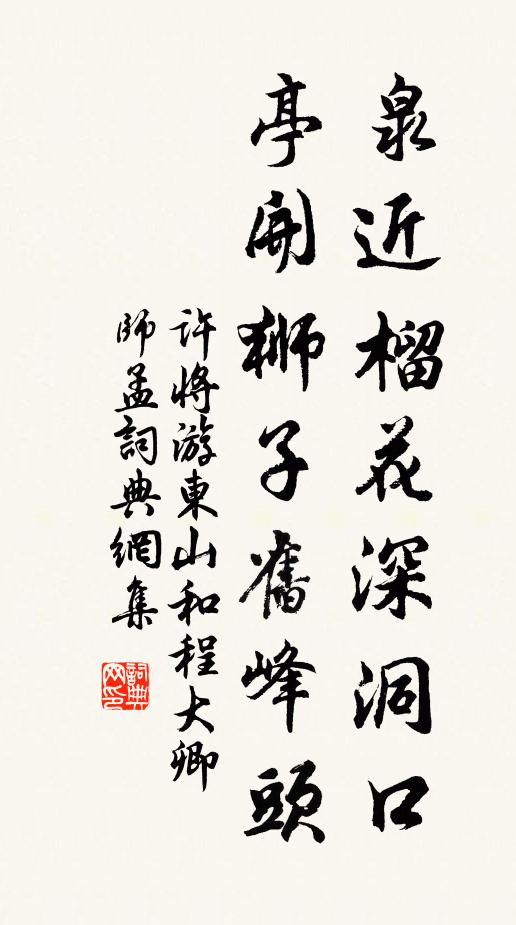 泉近榴花深洞口
亭開獅子舊峰頭
許將游東山和程大卿
師孟詞典網集
詞典网印